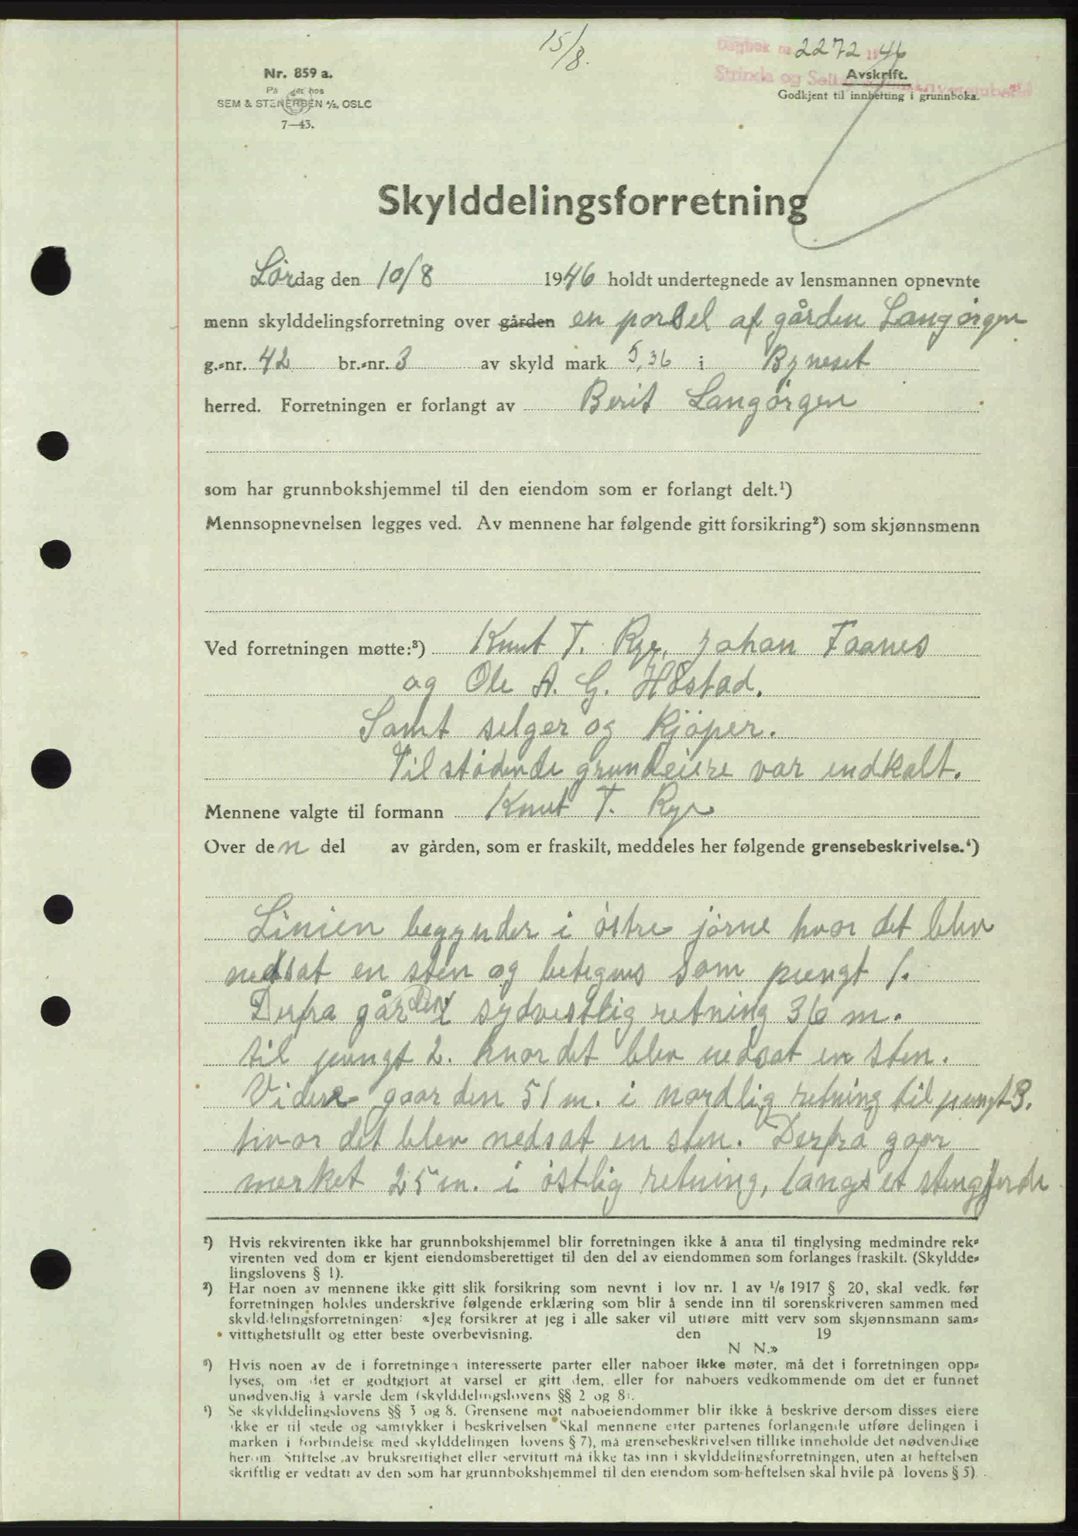 15/8.
Dagbok nr. 2272 1946
Strinda og Selbu
Nr. 859 a.
På hos
SEM & STENERSEN A/S, OSLO
7—43.
Avskrift.
Godkjent til innhefting i grunnboka.
Skylddelingsforretning
Lørdag den 10/8 1946 holdt undertegnede av lensmannen opnevnte
menn skylddelingsforretning over gården en porsel af gården Langørgen
g.-nr. 42 br.-nr. 3 av skyld mark 5,36 i Byneset
herred. Forretningen er forlangt av Berit Langørgen
som har grunnbokshjemmel til den eiendom som er forlangt delt.¹)
Mennsopnevnelsen legges ved. Av mennene har følgende gitt forsikring²) som skjønnsmenn
Ved forretningen møtte:³) Knut T. Rye, Johan Faanes
og Ole A. G. Høstad.
Samt selger og kjøper.
Tilstødende grundeiere var indkalt.
Mennene valgte til formann Knut T. Rye
Over den del av gården, som er fraskilt, meddeles her følgende grensebeskrivelse.⁴)
Linien begynder i østre jørne hvor det blev
nedsat en sten og betegnes som pungt 1.
Derfra går den i sydvestlig retning 36 m.
til pungt 2. hvor det blev nedsat en sten.
Videre gaar den 51 m. i nordlig retning til pungt 3.
hvor det blev nedsat en sten. Derfra gaar
merket 25 m. i østlig retning, langs et stengjerde
¹) Hvis rekvirenten ikke har grunnbokshjemmel blir forretningen ikke å anta til tinglysing medmindre rek-
virenten ved dom er kjent eiendomsberettiget til den del av eiendommen som forlanges fraskilt. (Skyldde-
lingslovens § 1).
²) Har noen av mennene ikke gitt slik forsikring som nevnt i lov nr. 1 av 1/6 1917 § 20, skal vedk. før
forretningen holdes underskrive følgende erklæring som blir å sende inn til sorenskriveren sammen med
skylddelingsforretningen: «Jeg forsikrer at jeg i alle saker vil utføre mitt verv som skjønnsmann sam-
vittighetsfullt og etter beste overbevisning. den 19
N. N.»
³) Hvis noen av de i forretningen interesserte parter eller naboer ikke møter, må det i forretningen opp-
lyses, om det er godtgjort at varsel er gitt dem, eller for naboers vedkommende om det er funnet
unødvendig å varsle dem (skylddelingslovens §§ 2 og 8).
⁴) Se skylddelingslovens §§ 3 og 8. Grensene mot naboeiendommer blir ikke å beskrive dersom disses eiere
ikke er til stede og samtykker i beskrivelsen. Skal mennene etter partenes forlangende utføre delingen i
marken i forbindelse med skylddelingen (lovens § 7), må grensebeskrivelsen tillike inneholde det nødvendige
herom. Stiftelse av bruksrettighet eller servitutt må ikke tas inn i skylddelingsforretningen, uten at heftelsen
skriftlig er vedtatt av den som har grunnbokshjemmel til den eiendom som heftelsen skal hvile på (lovens § 5).